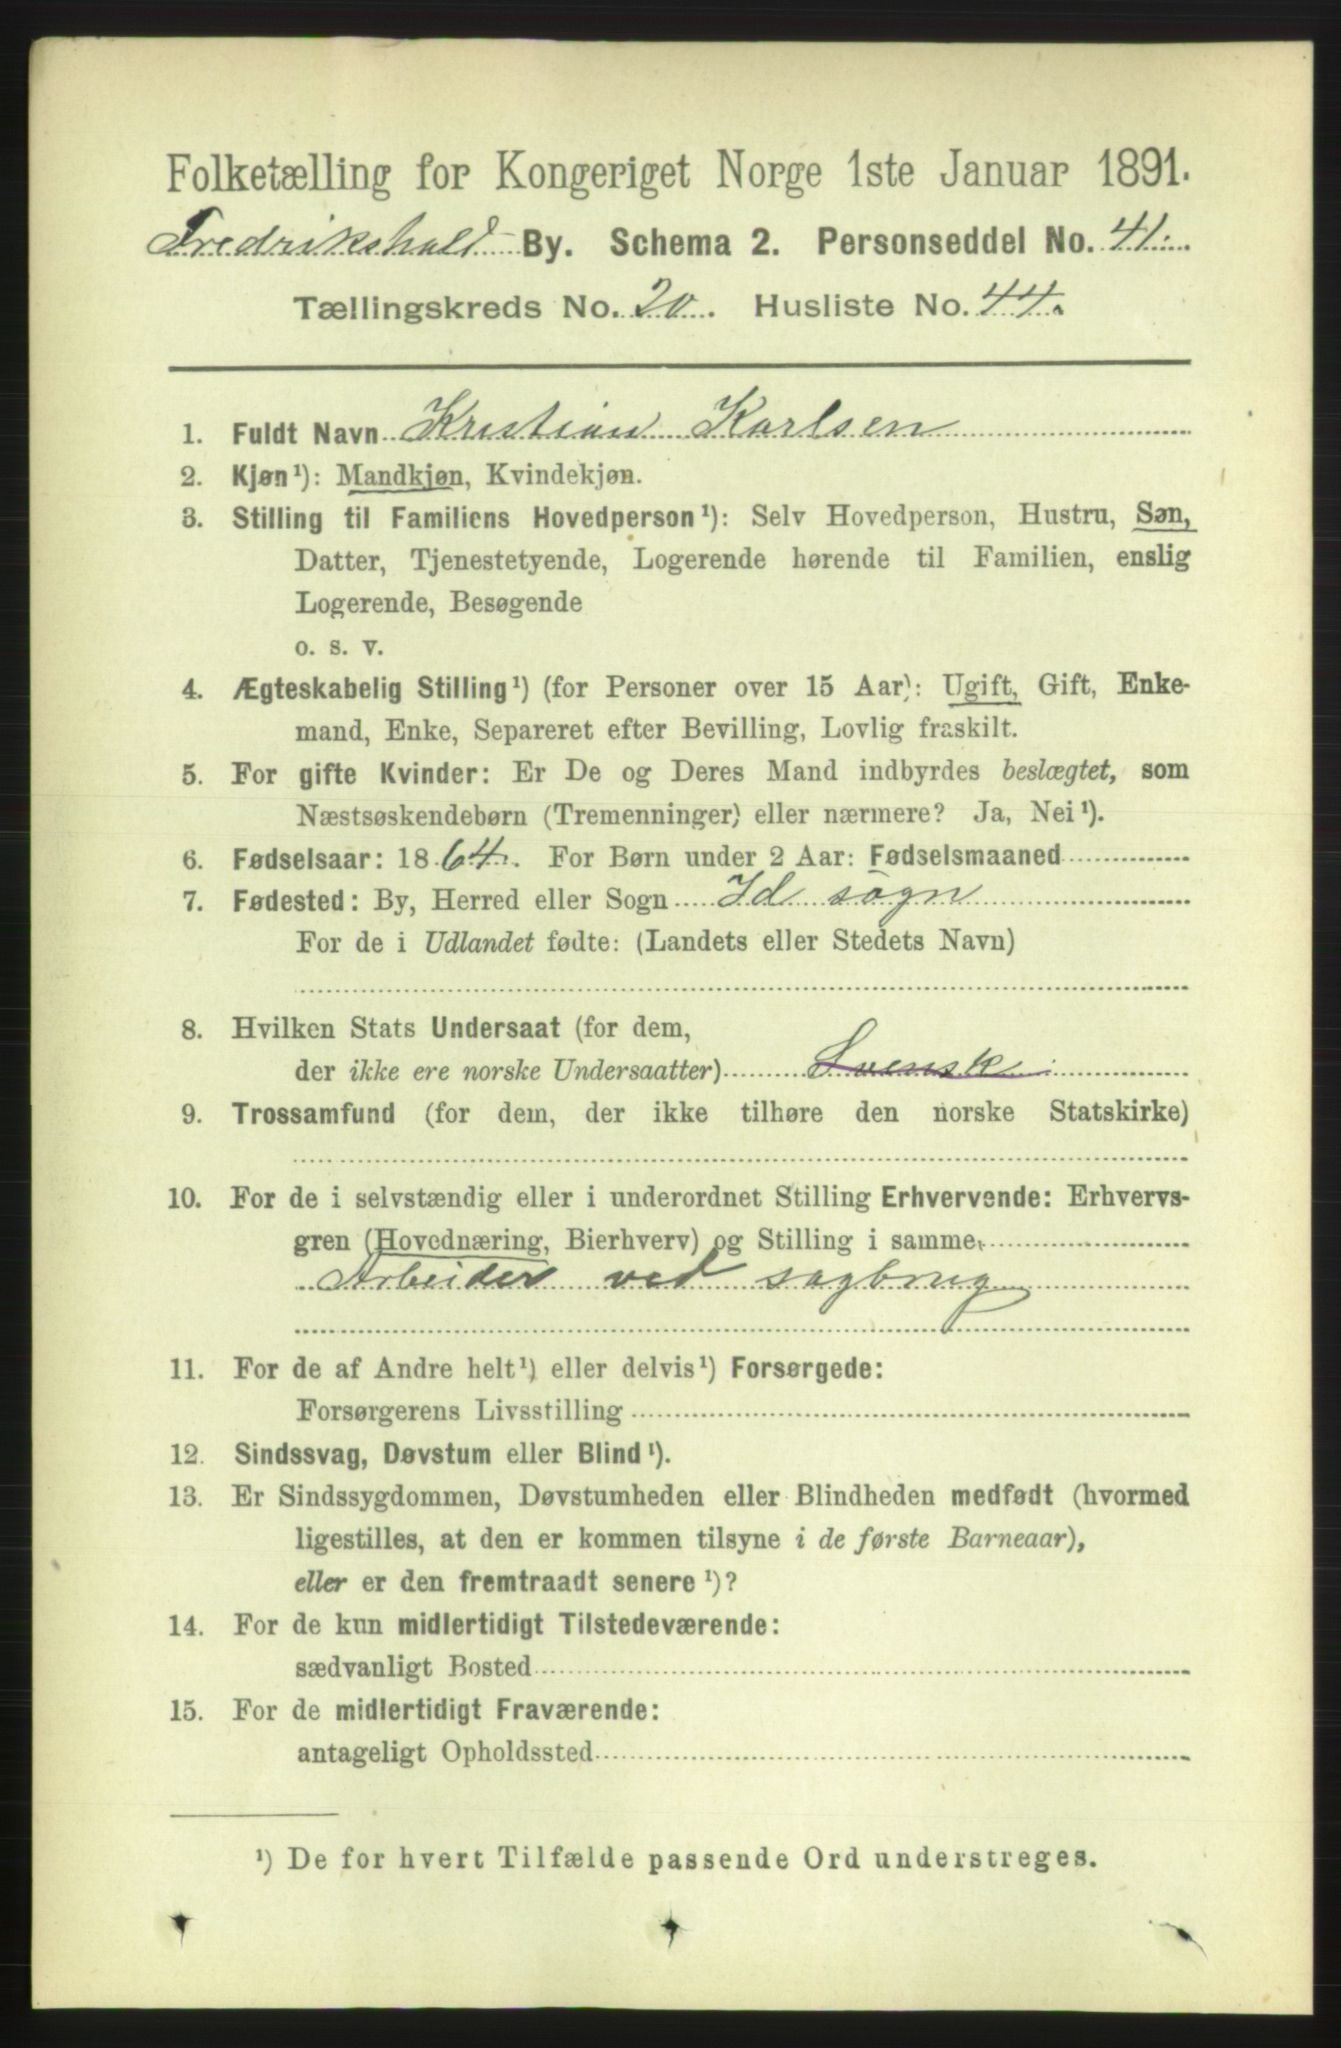 Folketælling for Kongeriget Norge 1ste Januar 1891.
Fredrikshald By. Schema 2. Personseddel No. 41.
Tællingskreds No. 20. Husliste No. 44.
1. Fuldt Navn Kristian Karlsen
2. Kjøn¹): Mandkjøn, Kvindekjøn.
3. Stilling til Familiens Hovedperson¹): Selv Hovedperson, Hustru, Søn,
Datter, Tjenestetyende, Logerende hørende til Familien, enslig
Logerende, Besøgende
o. s. v.
4. Ægteskabelig Stilling¹) (for Personer over 15 Aar): Ugift, Gift, Enke-
mand, Enke, Separeret efter Bevilling, Lovlig fraskilt.
5. For gifte Kvinder: Er De og Deres Mand indbyrdes beslægtet, som
Næstsøskendebørn (Tremenninger) eller nærmere? Ja, Nei¹).
6. Fødselsaar: 1864. For Børn under 2 Aar: Fødselsmaaned
7. Fødested: By, Herred eller Sogn Id sogn
For de i Udlandet fødte: (Landets eller Stedets Navn)
8. Hvilken Stats Undersaat (for dem,
der ikke ere norske Undersaatter) Svensk
9. Trossamfund (for dem, der ikke tilhøre den norske Statskirke)
10. For de i selvstændig eller i underordnet Stilling Erhvervende: Erhvervs-
gren (Hovednæring, Bierhverv) og Stilling i samme
Arbeider ved sagbrug
11. For de af Andre helt¹) eller delvis¹) Forsørgede:
Forsørgerens Livsstilling
12. Sindssvag, Døvstum eller Blind¹).
13. Er Sindssygdommen, Døvstumheden eller Blindheden medfødt (hvormed
ligestilles, at den er kommen tilsyne i de første Barneaar),
eller er den fremtraadt senere¹)?
14. For de kun midlertidigt Tilstedeværende:
sædvanligt Bosted
15. For de midlertidigt Fraværende:
antageligt Opholdssted
¹) De for hvert Tilfælde passende Ord understreges.